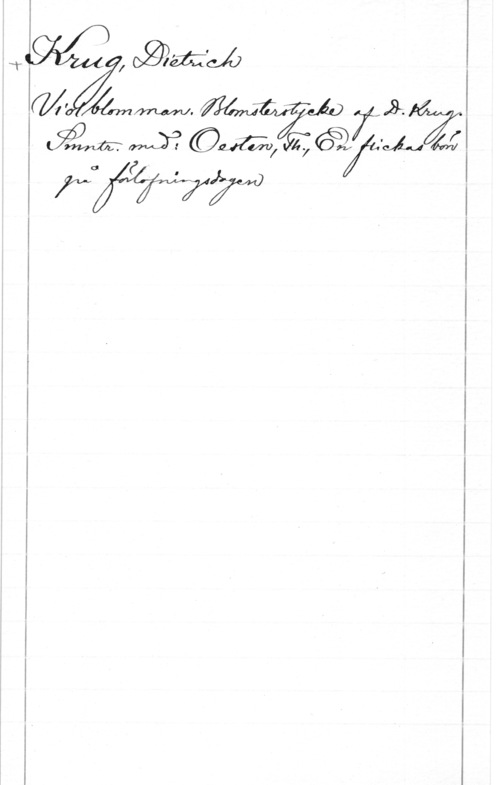 + Krug, Dietrich
Violblomman. Blomsterstycke af D. Krug.
Smntr. med: Oesten, Th., En flickas bön
på förlofningsdagen